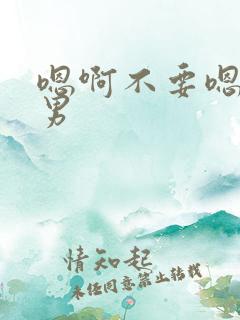 嗯啊不要嗯
男
情知起
未经同意禁止转载